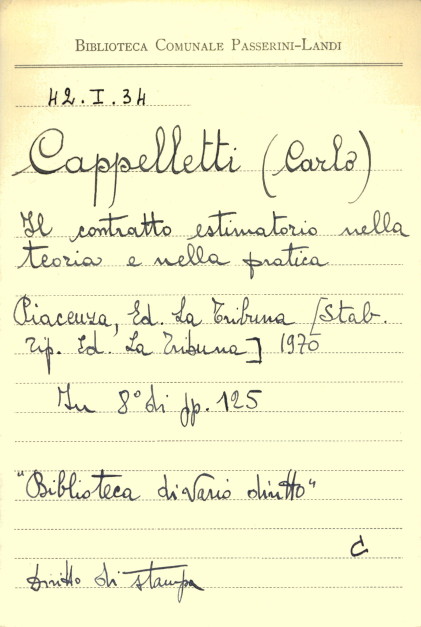 BIBLIOTECA COMUNALE PASSERINI-LANDI
42.I.34
Cappelletti (Carlo)
Il contratto estimatorio nella
teoria e nella pratica
Piacenza, Ed. La Tribuna [Stab.
Tip. Ed. La Tribuna] 1970
In 8° di pp. 125
"Biblioteca di vario diritto"
C
Diritto di stampa